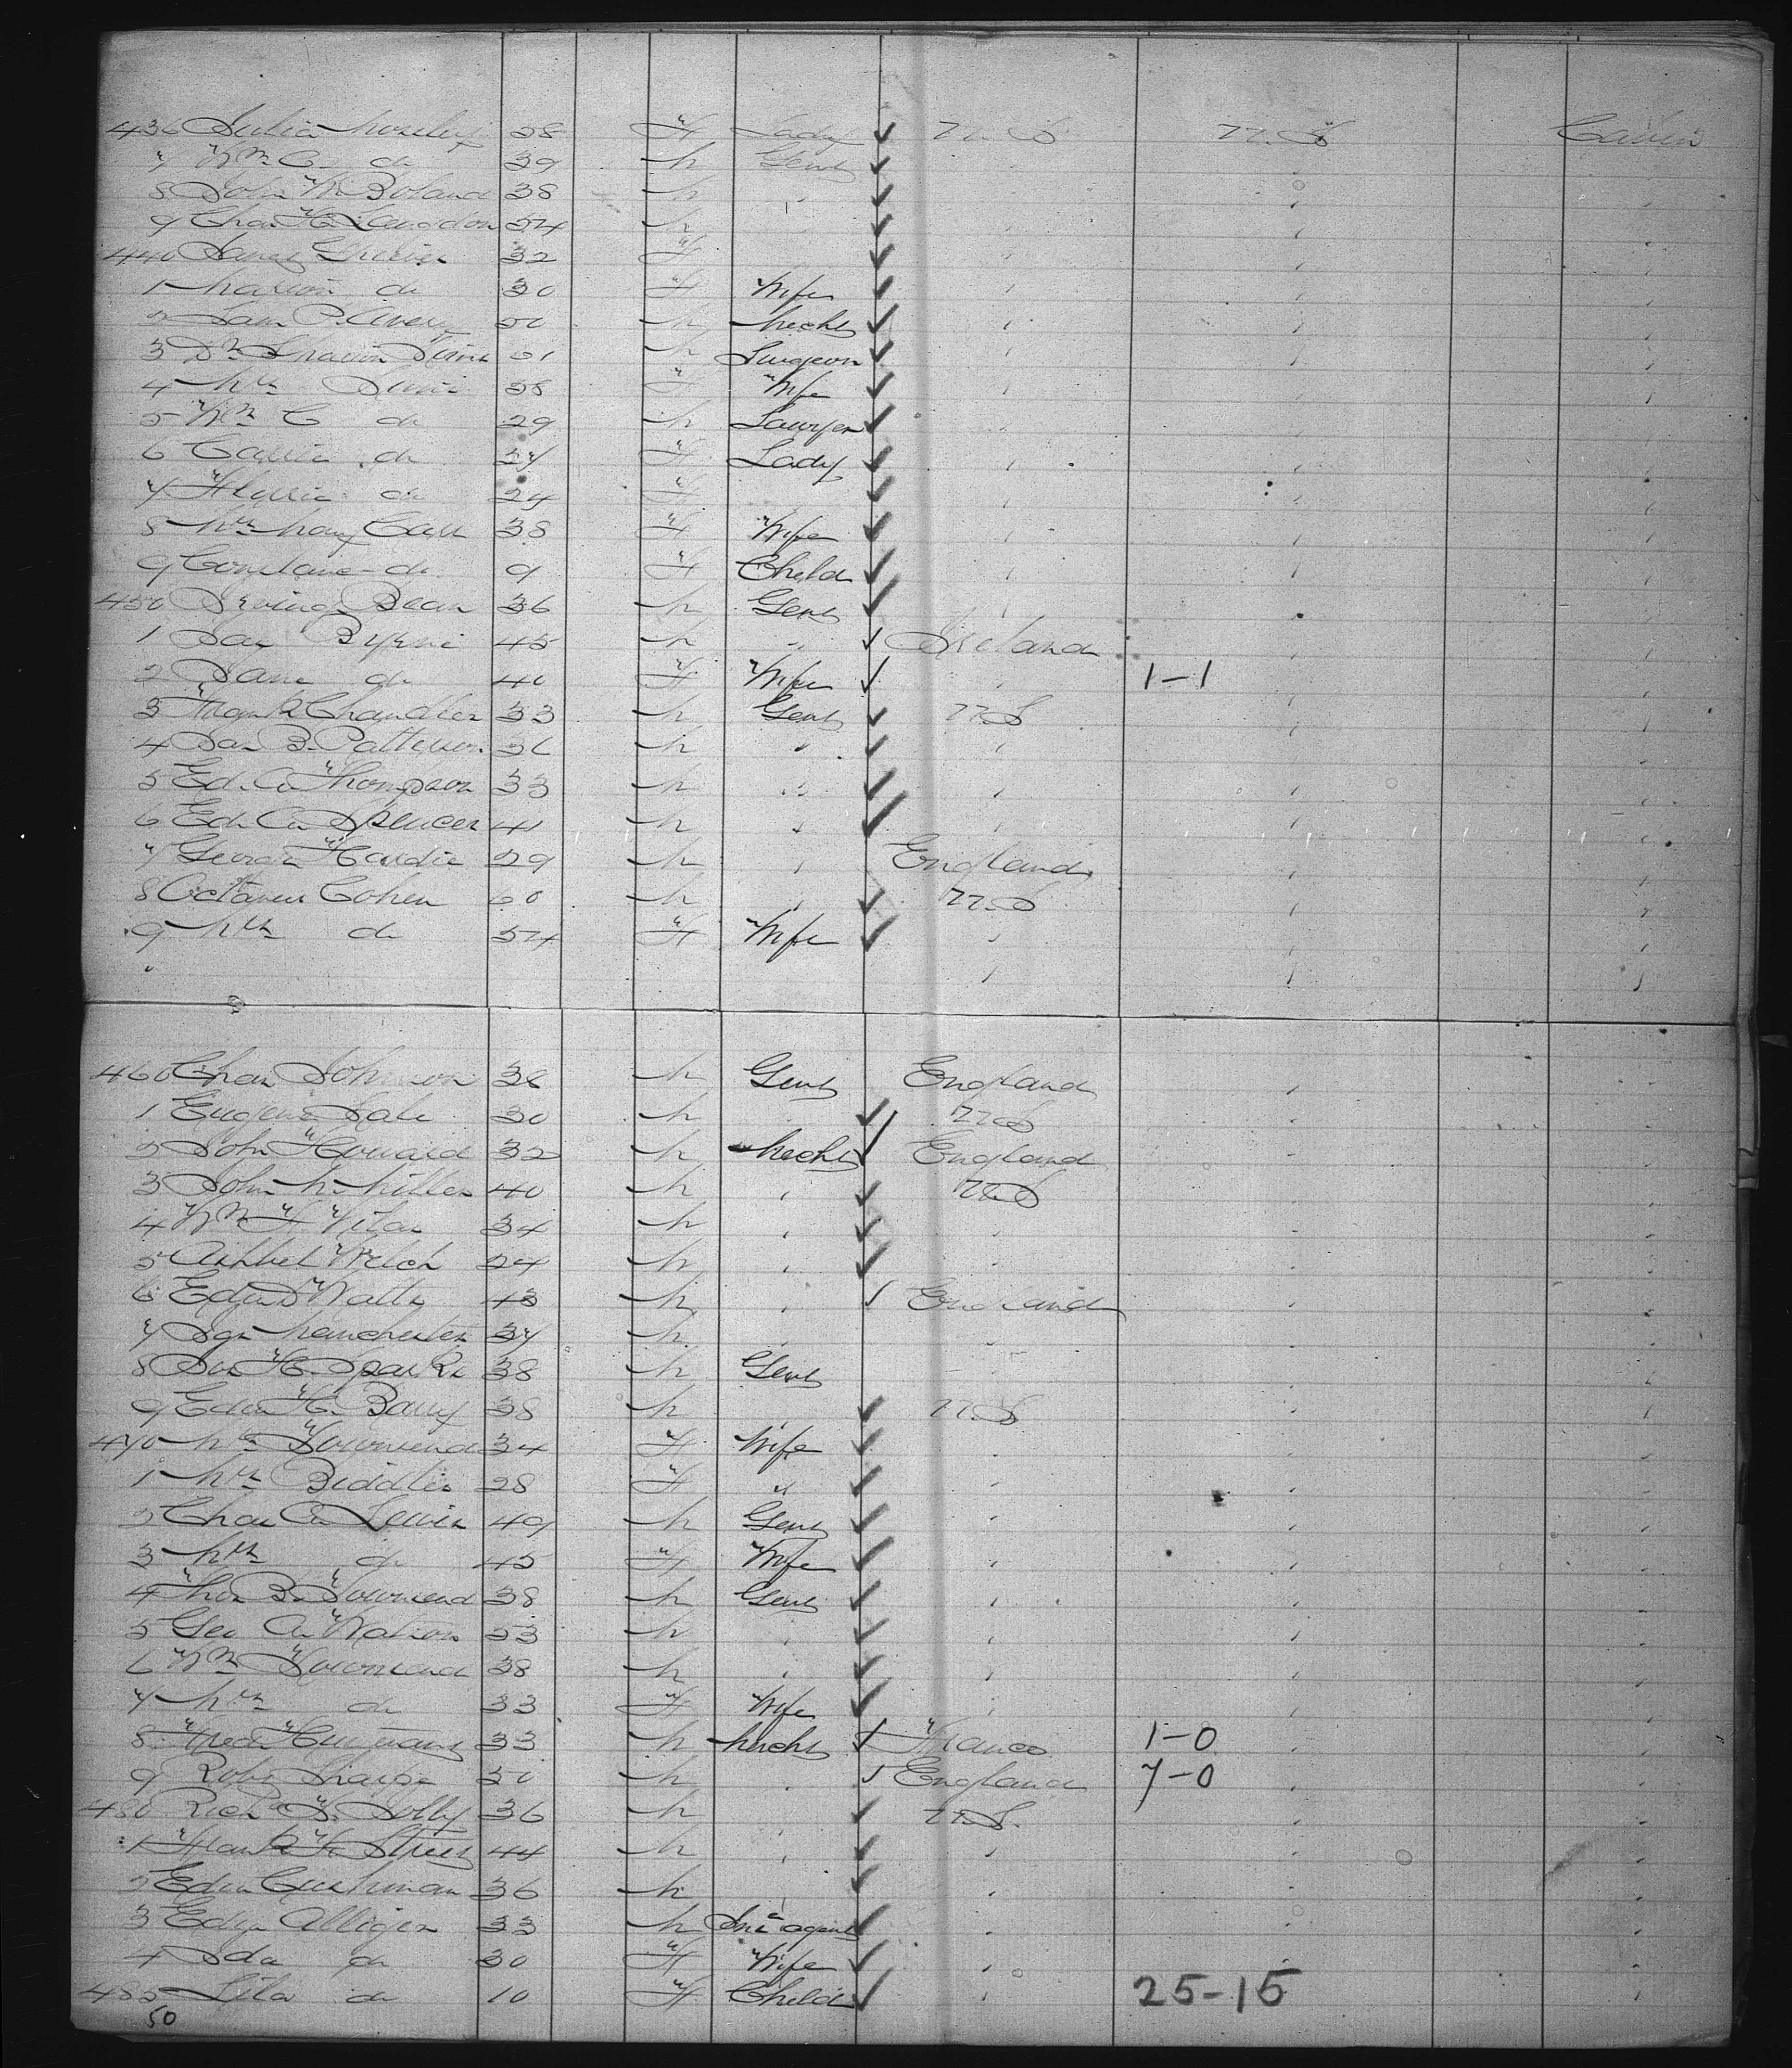 436 Julia Moseley 28 F Lady U.S U.S Cabin
7 Wm C. do 39 M Gent
8 John W Boland 38 M
9 Chas H. Langdon 54 M
440 32 F
1 Marion do 30 F Wife
2 Sam P. Avery 50 M Mecht
3 Dr J Marion Sims 61 M Surgeon
4 Mrs Sims 58 F Wife
5 Wm C do 29 M Lawyer
6 Carrie do 27 F Lady
7 do 24 F
8 Mrs Mary Carr 38 F Wife
9 Constance do 9 F Child
450 Irving Bean 36 M Gent
1 Jas Byrne 45 M " Ireland
2 Jane do 40 F Wife " 1-1
3 Frank R Chandler 33 M Gent U.S
4 Jas B. Patterson 36 M "
5 Ed. A Thompson 33 M "
6 Ed. A Spencer 41 M "
7 George Hardie 29 M " England
8 Octavus Cohen 60 M " U.S
9 Mrs do 54 F Wife "
460 Chas Johnson 38 M Gent England
1 Eugene Dale 30 M U.S
2 John Howard 32 M Mecht England
3 John M. Miller 40 M " U.S
4 Wm F 34 M "
5 Ashbel Welch 24 M "
6 Edwd Watts 43 M " England
7 Manchester 37 M "
8 H. Sparks 38 M Gent
9 Edw H. Barry 38 M U.S
470 Mrs Townsend 34 F Wife
1 Mrs Biddle 28 F "
2 Chas A Lewis 49 M Gent
3 Mrs do 45 F Wife
4 Thos B. Townsend 38 M Gent
5 Geo A. Watson 53 M "
6 Wm Townsend 38 M "
7 Mrs do 33 F Wife
8 Fred 33 M Mecht France 1-0
9 Robt Sharpe 50 M " England 7-0
480 Richd S. Dolby 36 M U.S.
1 Frank F. Street 44 M "
2 Edw Cushman 36 M
3 Edgr Alliger 33 M Inse agent
4 Ida do 30 F Wife
485 Lila do 10 F Child 25-15
50